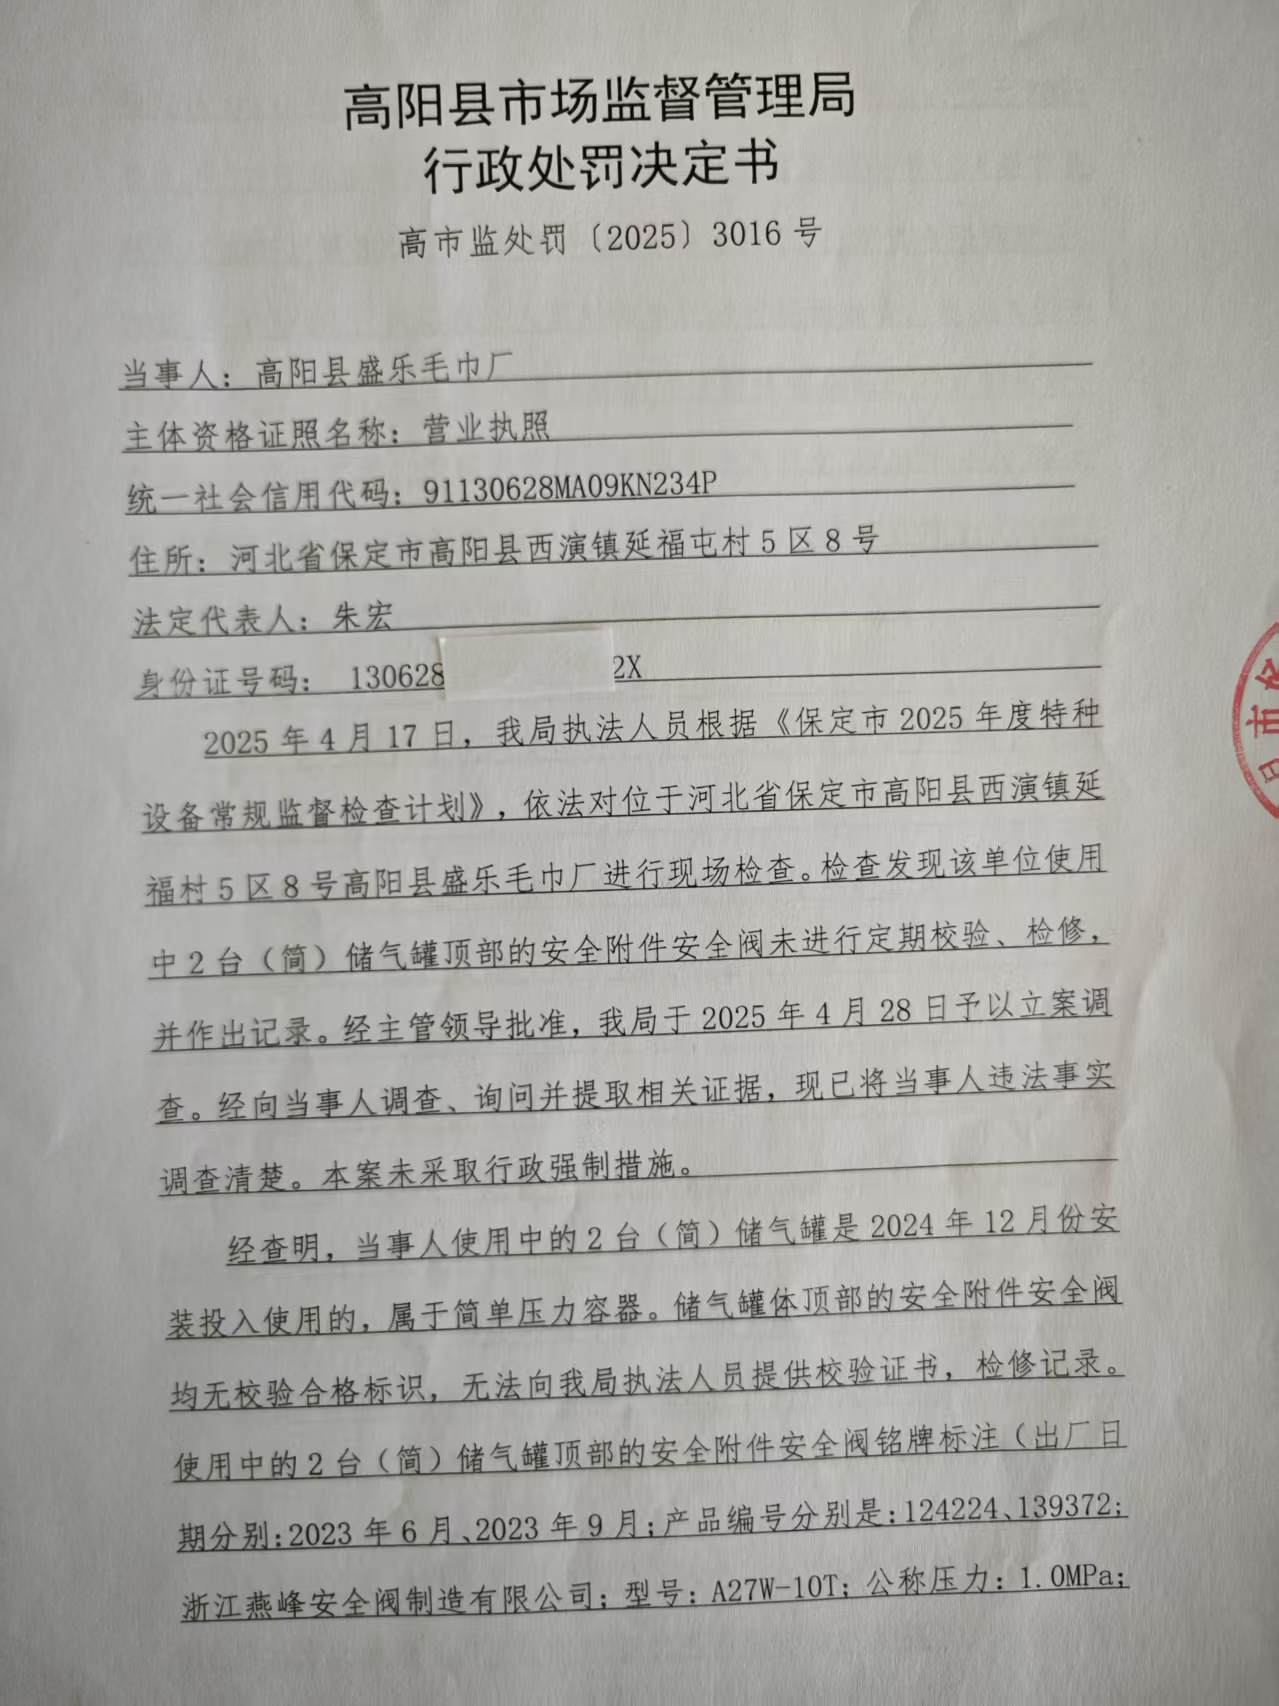 高阳县市场监督管理局
行政处罚决定书
高市监处罚〔2025〕3016号
当事人：高阳县盛乐毛巾厂
主体资格证照名称：营业执照
统一社会信用代码：91130628MA09KN234P
住所：河北省保定市高阳县西演镇延福屯村5区8号
法定代表人：朱宏
身份证号码： 130628 2X
2025年4月17日，我局执法人员根据《保定市2025年度特种
设备常规监督检查计划》，依法对位于河北省保定市高阳县西演镇延
福村5区8号高阳县盛乐毛巾厂进行现场检查。检查发现该单位使用
中2台（简）储气罐顶部的安全附件安全阀未进行定期校验、检修，
并作出记录。经主管领导批准，我局于2025年4月28日予以立案调
查。经向当事人调查、询问并提取相关证据，现已将当事人违法事实
调查清楚。本案未采取行政强制措施。
经查明，当事人使用中的2台（简）储气罐是2024年12月份安
装投入使用的，属于简单压力容器。储气罐体顶部的安全附件安全阀
均无校验合格标识，无法向我局执法人员提供校验证书，检修记录。
使用中的2台（简）储气罐顶部的安全附件安全阀铭牌标注（出厂日
期分别:2023年6月、2023年9月;产品编号分别是:124224、139372;
浙江燕峰安全阀制造有限公司；型号：A27W-10T；公称压力：1.0MPa；
市